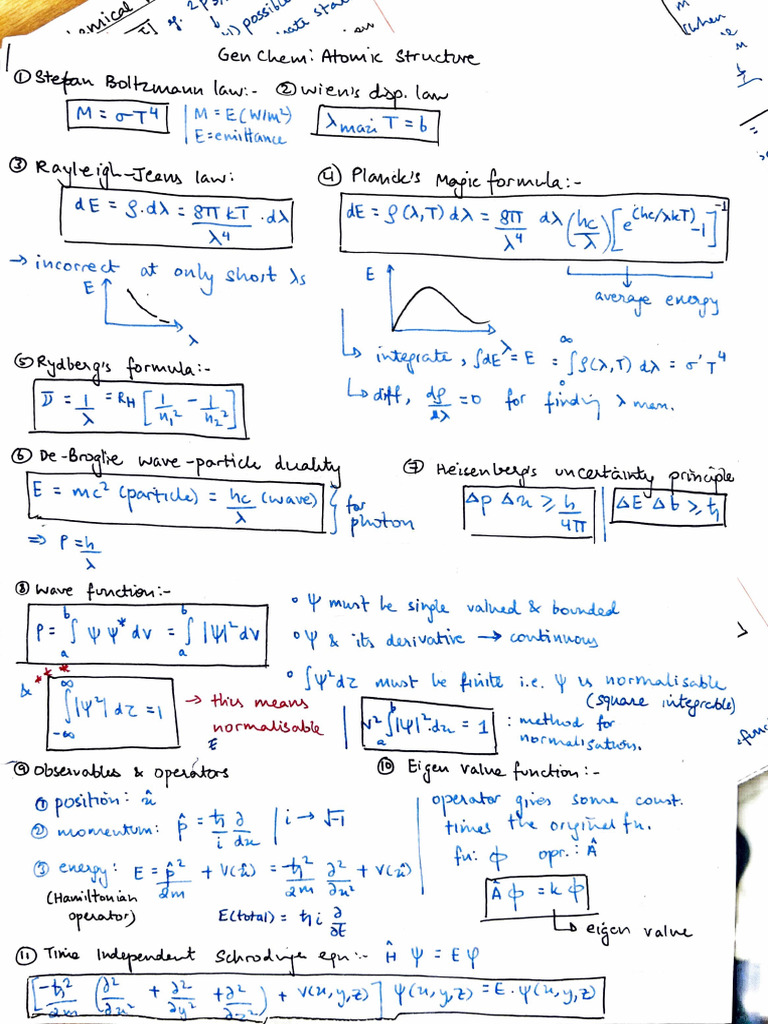 emical
ii) possible
nate sta
(when
Gen Chem: Atomic Structure
① Stefan Boltzmann law:- ② Wien's disp. law
M = σT⁴ | M = E (W/m²)
E = emittance
λmaxi T = b
③ Rayleigh-Jeans law:
dE = ρ.dλ = 8πkT/λ⁴ .dλ
→ incorrect at only short λs
E
λ
④ Planck's Magic formula:-
dE = ρ(λ,T) dλ = 8π/λ⁴ dλ (hc/λ) [e^(hc/λkT) -1]⁻¹
average energy
E
λ
↳ integrate, ∫dE = E = ∫₀^∞ ρ(λ,T) dλ = σ'T⁴
↳ diff, dρ/dλ = 0 for finding λ man.
⑤ Rydberg's formula:-
ν̄ = 1/λ = R_H [1/n₁² - 1/n₂²]
⑥ De-Broglie wave-particle duality
E = mc² (particle) = hc/λ (wave) } for photon
⇒ P = h/λ
⑦ Heisenberg's uncertainty principle
Δp Δx ≥ h/4π | ΔE Δt ≥ ħ
⑧ Wave function:-
P = ∫ₐᵇ ψ ψ* dv = ∫ₐᵇ |ψ|² dv
° ψ must be single valued & bounded
° ψ & its derivative → continuous
° ∫ψ²dτ must be finite i.e. ψ is normalisable
(square integrable)
& *** ∫₋∞^∞ |ψ²| dτ = 1 → this means
normalisable
E
N² ∫ₐᵇ |ψ|².dx = 1 : method for
normalisation.
⑨ Observables & operators
① position: x̂
② momentum: p̂ = ħ/i ∂/∂x | i → √-1
③ energy: E = p̂²/2m + V(x̂) = -ħ²/2m ∂²/∂x² + V(x̂)
(Hamiltonian
operator)
E(total) = ħi ∂/∂t
⑩ Eigen value function:-
operator gives some const.
times the original fn.
fn: ϕ opr.: Â
Â ϕ = k ϕ
↳ eigen value
⑪ Time Independent Schrodinge eqn:- Ĥ ψ = Eψ
[-ħ²/2m (∂²/∂x² + ∂²/∂y² + ∂²/∂z²) + V(x,y,z)] ψ(x,y,z) = E.ψ(x,y,z)